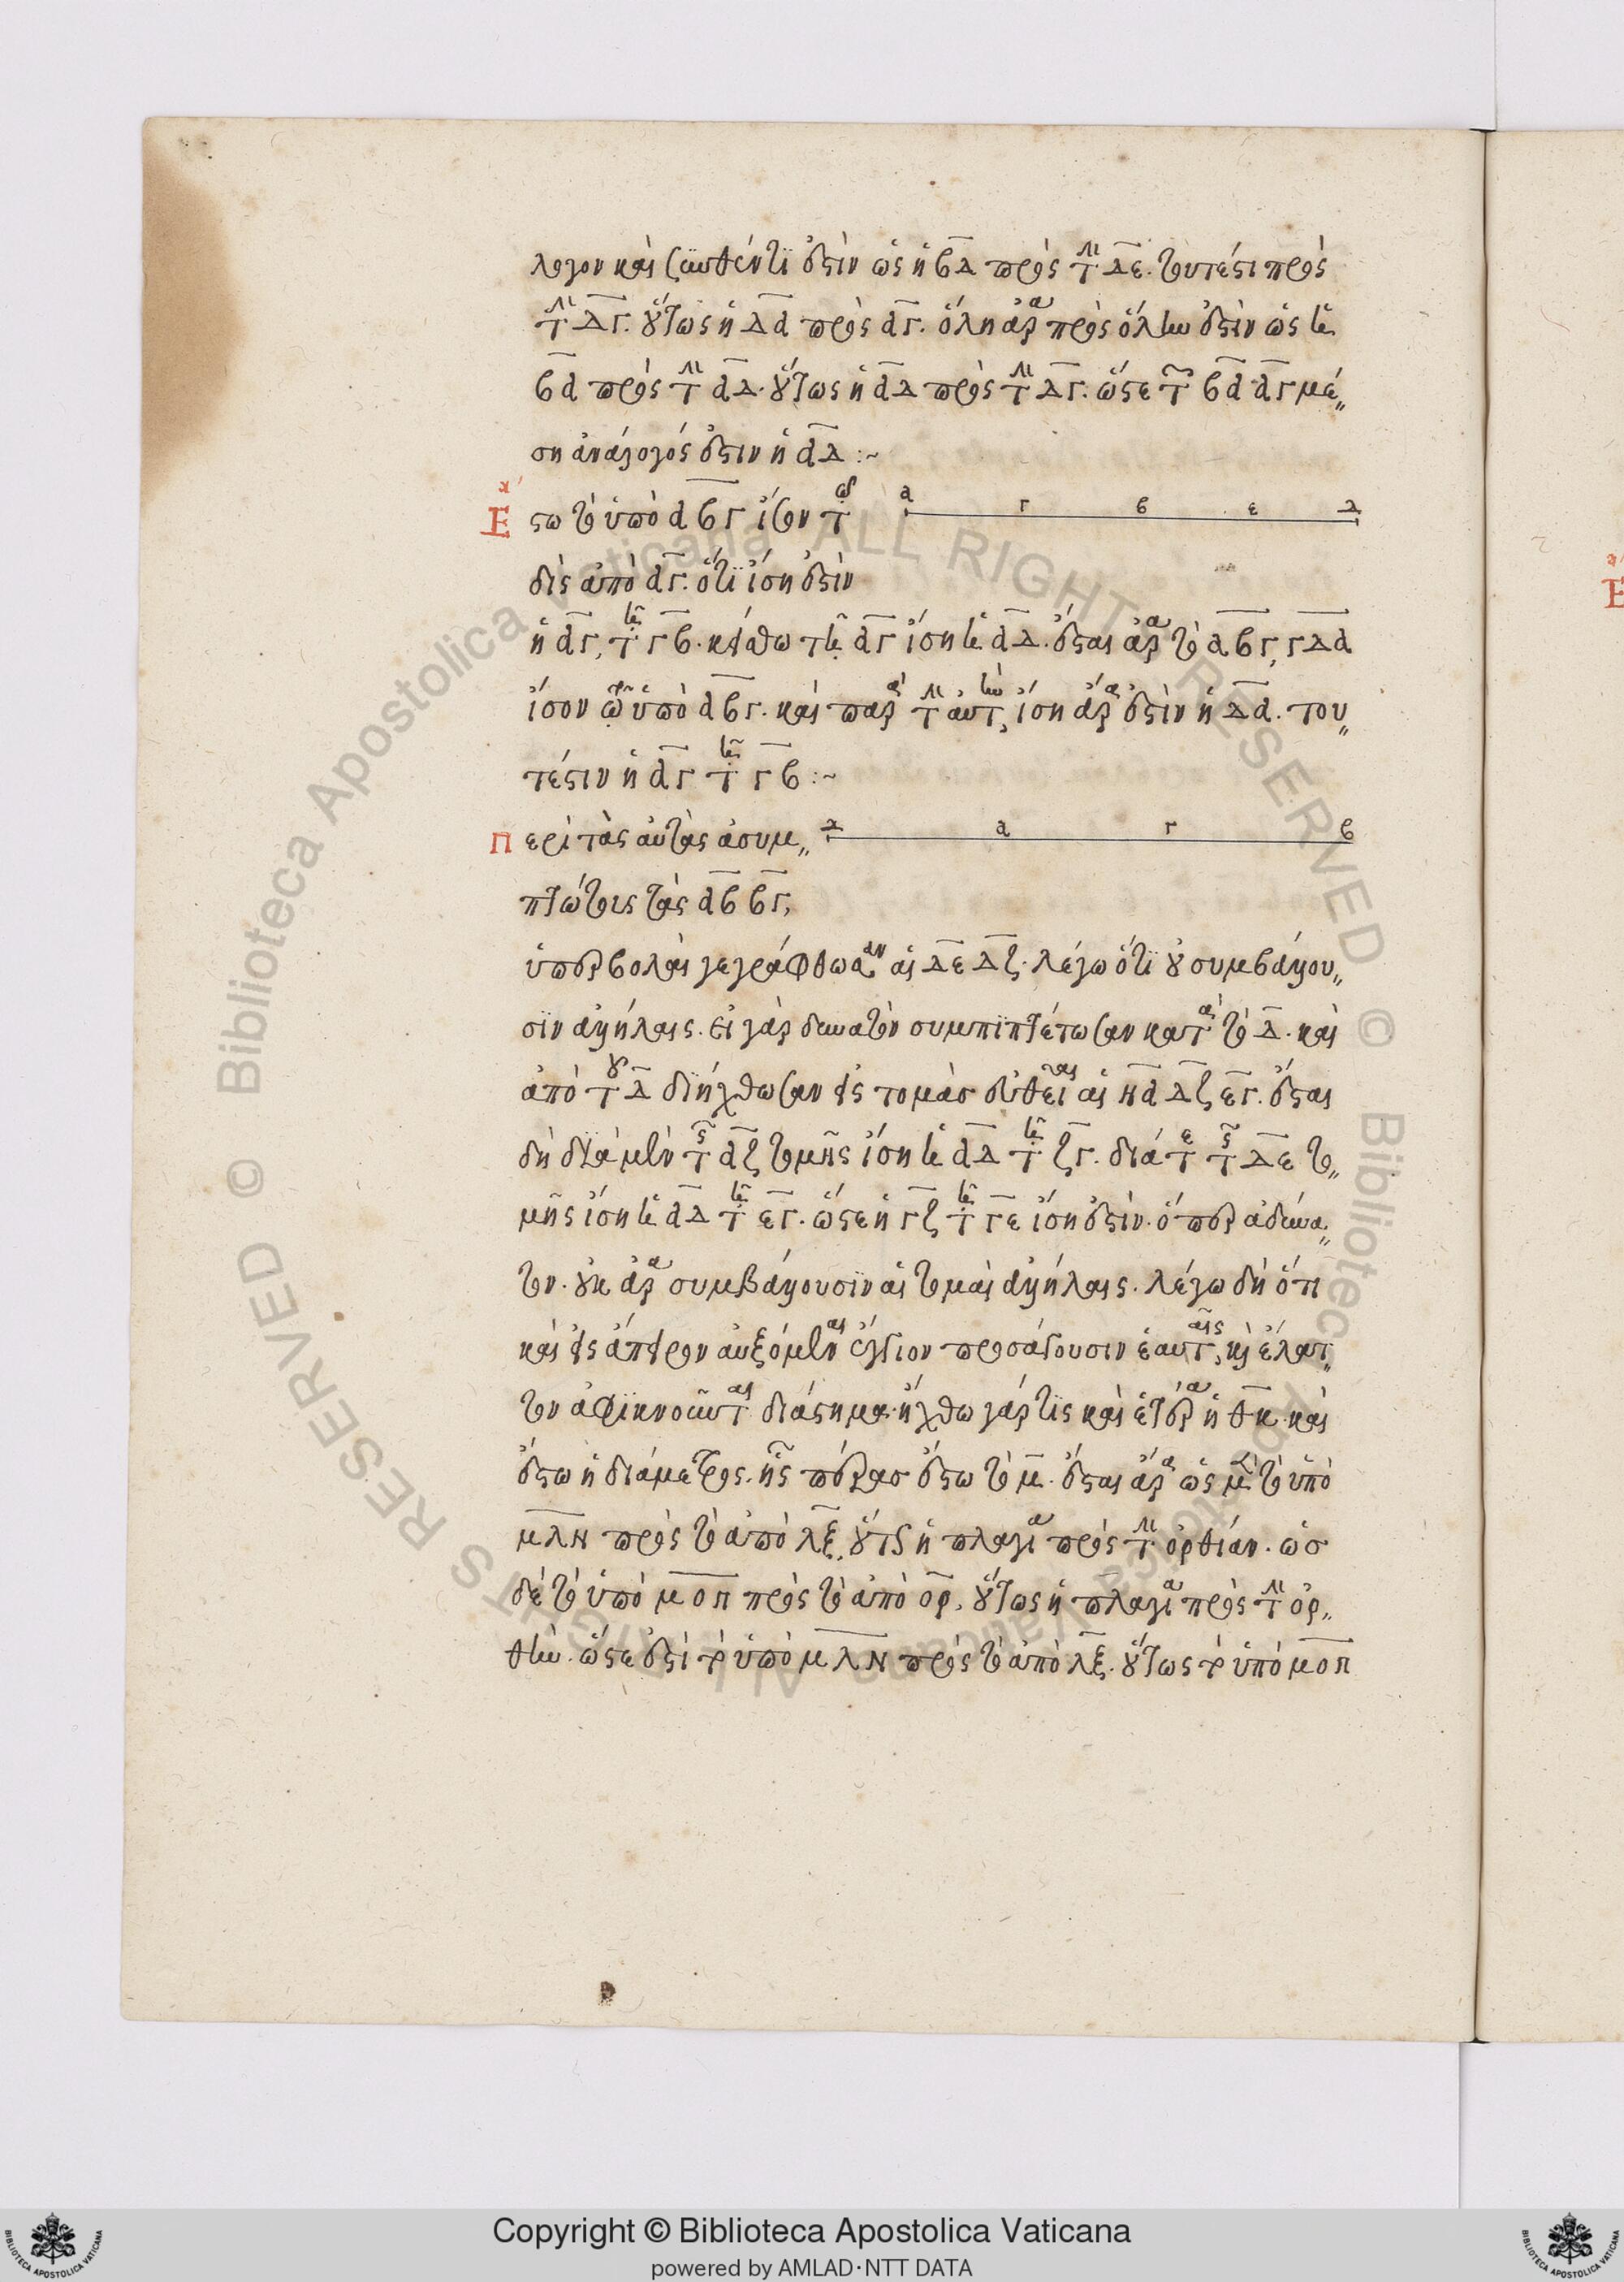 λογον καὶ συνθέντι ἐστὶν ὡς ἡ ΒΔ πρὸς τὴν ΔΕ. τουτέστι πρὸς
τὴν ΔΓ. οὕτως ἡ ΔΑ πρὸς ΑΓ. ὅλη ἄρα πρὸς ὅλην ἐστὶν ὡς ἡ
ΒΑ πρὸς τὴν ΑΔ. οὕτως ἡ ΑΔ πρὸς τὴν ΔΓ. ὥστε τῶν ΒΑ ΑΓ μέ〃
ση ἀνάλογός ἐστιν ἡ ΑΔ :~
α´
Ἔστω τὸ ὑπὸ ΑΒΓ ἴσον τῷ
α Γ β ε Δ
δὶς ἀπὸ ΑΓ. ὅτι ἴση ἐστὶν
ἡ ΑΓ, τῇ ΓΒ. κείσθω τῇ ΑΓ ἴση ἡ ΑΔ. ἔσται ἄρα τὸ ΑΒΓ, ΓΔΑ
ἴσον τῷ ὑπὸ ΑΒΓ. καὶ παρὰ τὴν αὐτήν, ἴση ἄρα ἐστὶν ἡ ΔΑ. του〃
τέστιν ἡ ΑΓ τῇ ΓΒ :~
Περὶ τὰς αὐτὰς ἀσυμ〃
Δ α Γ β
πτώτοις τὰς ΑΒ ΒΓ,
ὑπερβολαὶ γεγράφθωσαν αἱ ΔΕ ΔΖ. λέγω ὅτι οὐ συμβάλλου〃
σιν ἀλλήλαις. εἰ γὰρ δυνατὸν συμπιπτέτωσαν κατὰ τὸ Δ. καὶ
ἀπὸ τοῦ Δ διήχθωσαν εἰς τομὰσ εὐθεῖαι αἱ ΗΑ ΔΖ ΕΓ. ἔσται
δὴ διὰ μὲν τῆς ΑΖ τομῆς ἴση ἡ ΑΔ τῇ ΖΓ. διὰ δὲ τῆς ΔΕ το〃
μῆς ἴση ἡ ΑΔ τῇ ΕΓ. ὥστε ἡ ΓΖ τῇ ΓΕ ἴση ἐστὶν. ὅπερ ἀδύνα〃
τον. οὐκ ἄρα συμβάλλουσιν αἱ τομαὶ ἀλλήλαις. λέγω δὴ ὅτι
καὶ εἰς ἄπειρον αὐξόμεναι ἔγγιον προσάγουσιν ἑαυταῖς, καὶ ἔλατ〃
τον ἀφικνοῦνται διάστημα. ἤχθω γάρ τις καὶ ἑτέρα ἡ ΘΚ. καὶ
ἔστω ἡ διάμετρος. ἧς πέρασ ἔστω τὸ Μ. ἔσται ἄρα ὡς μὲν τὸ ὑπὸ
ΜΛΝ πρὸς τὸ ἀπὸ ΛΞ, οὕτως ἡ πλαγία πρὸς τὴν ὀρθίαν. ὡσ
δὲ τὸ ὑπὸ ΜΟΠ πρὸς τὸ ἀπὸ ΟΡ, οὕτως ἡ πλαγία πρὸς τὴν ὀρ〃
θίαν. ὥστε ἐστὶ τὸ ὑπὸ ΜΛΝ πρὸς τὸ ἀπὸ ΛΞ. οὕτως τὸ ὑπὸ ΜΟΠ
Copyright © Biblioteca Apostolica Vaticana
powered by AMLAD·NTT DATA